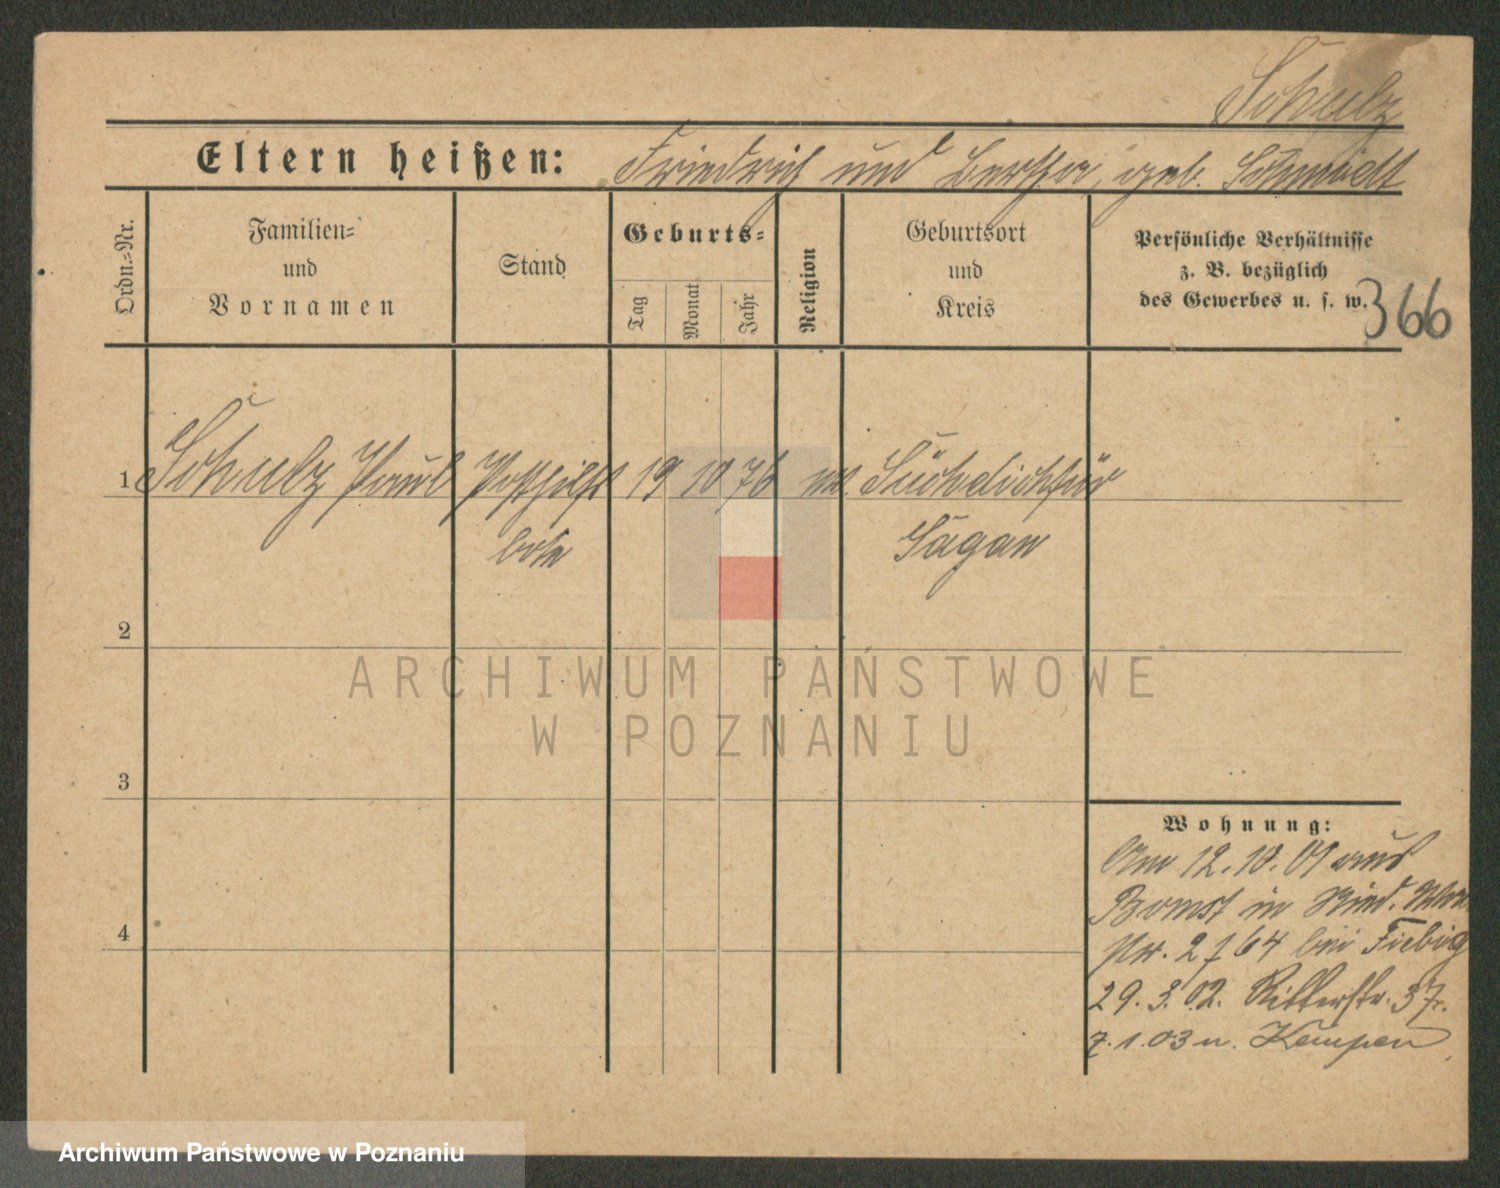 Schulz
Eltern heißen: Friedrich und Bertha, geb. Schmidt
Ordn.-Nr.
Familien-
und
Vornamen
Stand
Geburts-
Tag
Monat
Jahr
Religion
Geburtsort
und
Kreis
Persönliche Verhältnisse
z. B. bezüglich
des Gewerbes u. s. w.
366
1 Schulz Paul Posthilfs 19 10 76
bote Sagan
2
3
4
Wohnung:
Am 12.10.01 aus
Bomst in
Nr. 2 64 bei Fiebig
29.3.02. Ritterstr. 37.
7.1.03 n. Kempen
ARCHIWUM PAŃSTWOWE
W POZNANIU
Archiwum Państwowe w Poznaniu